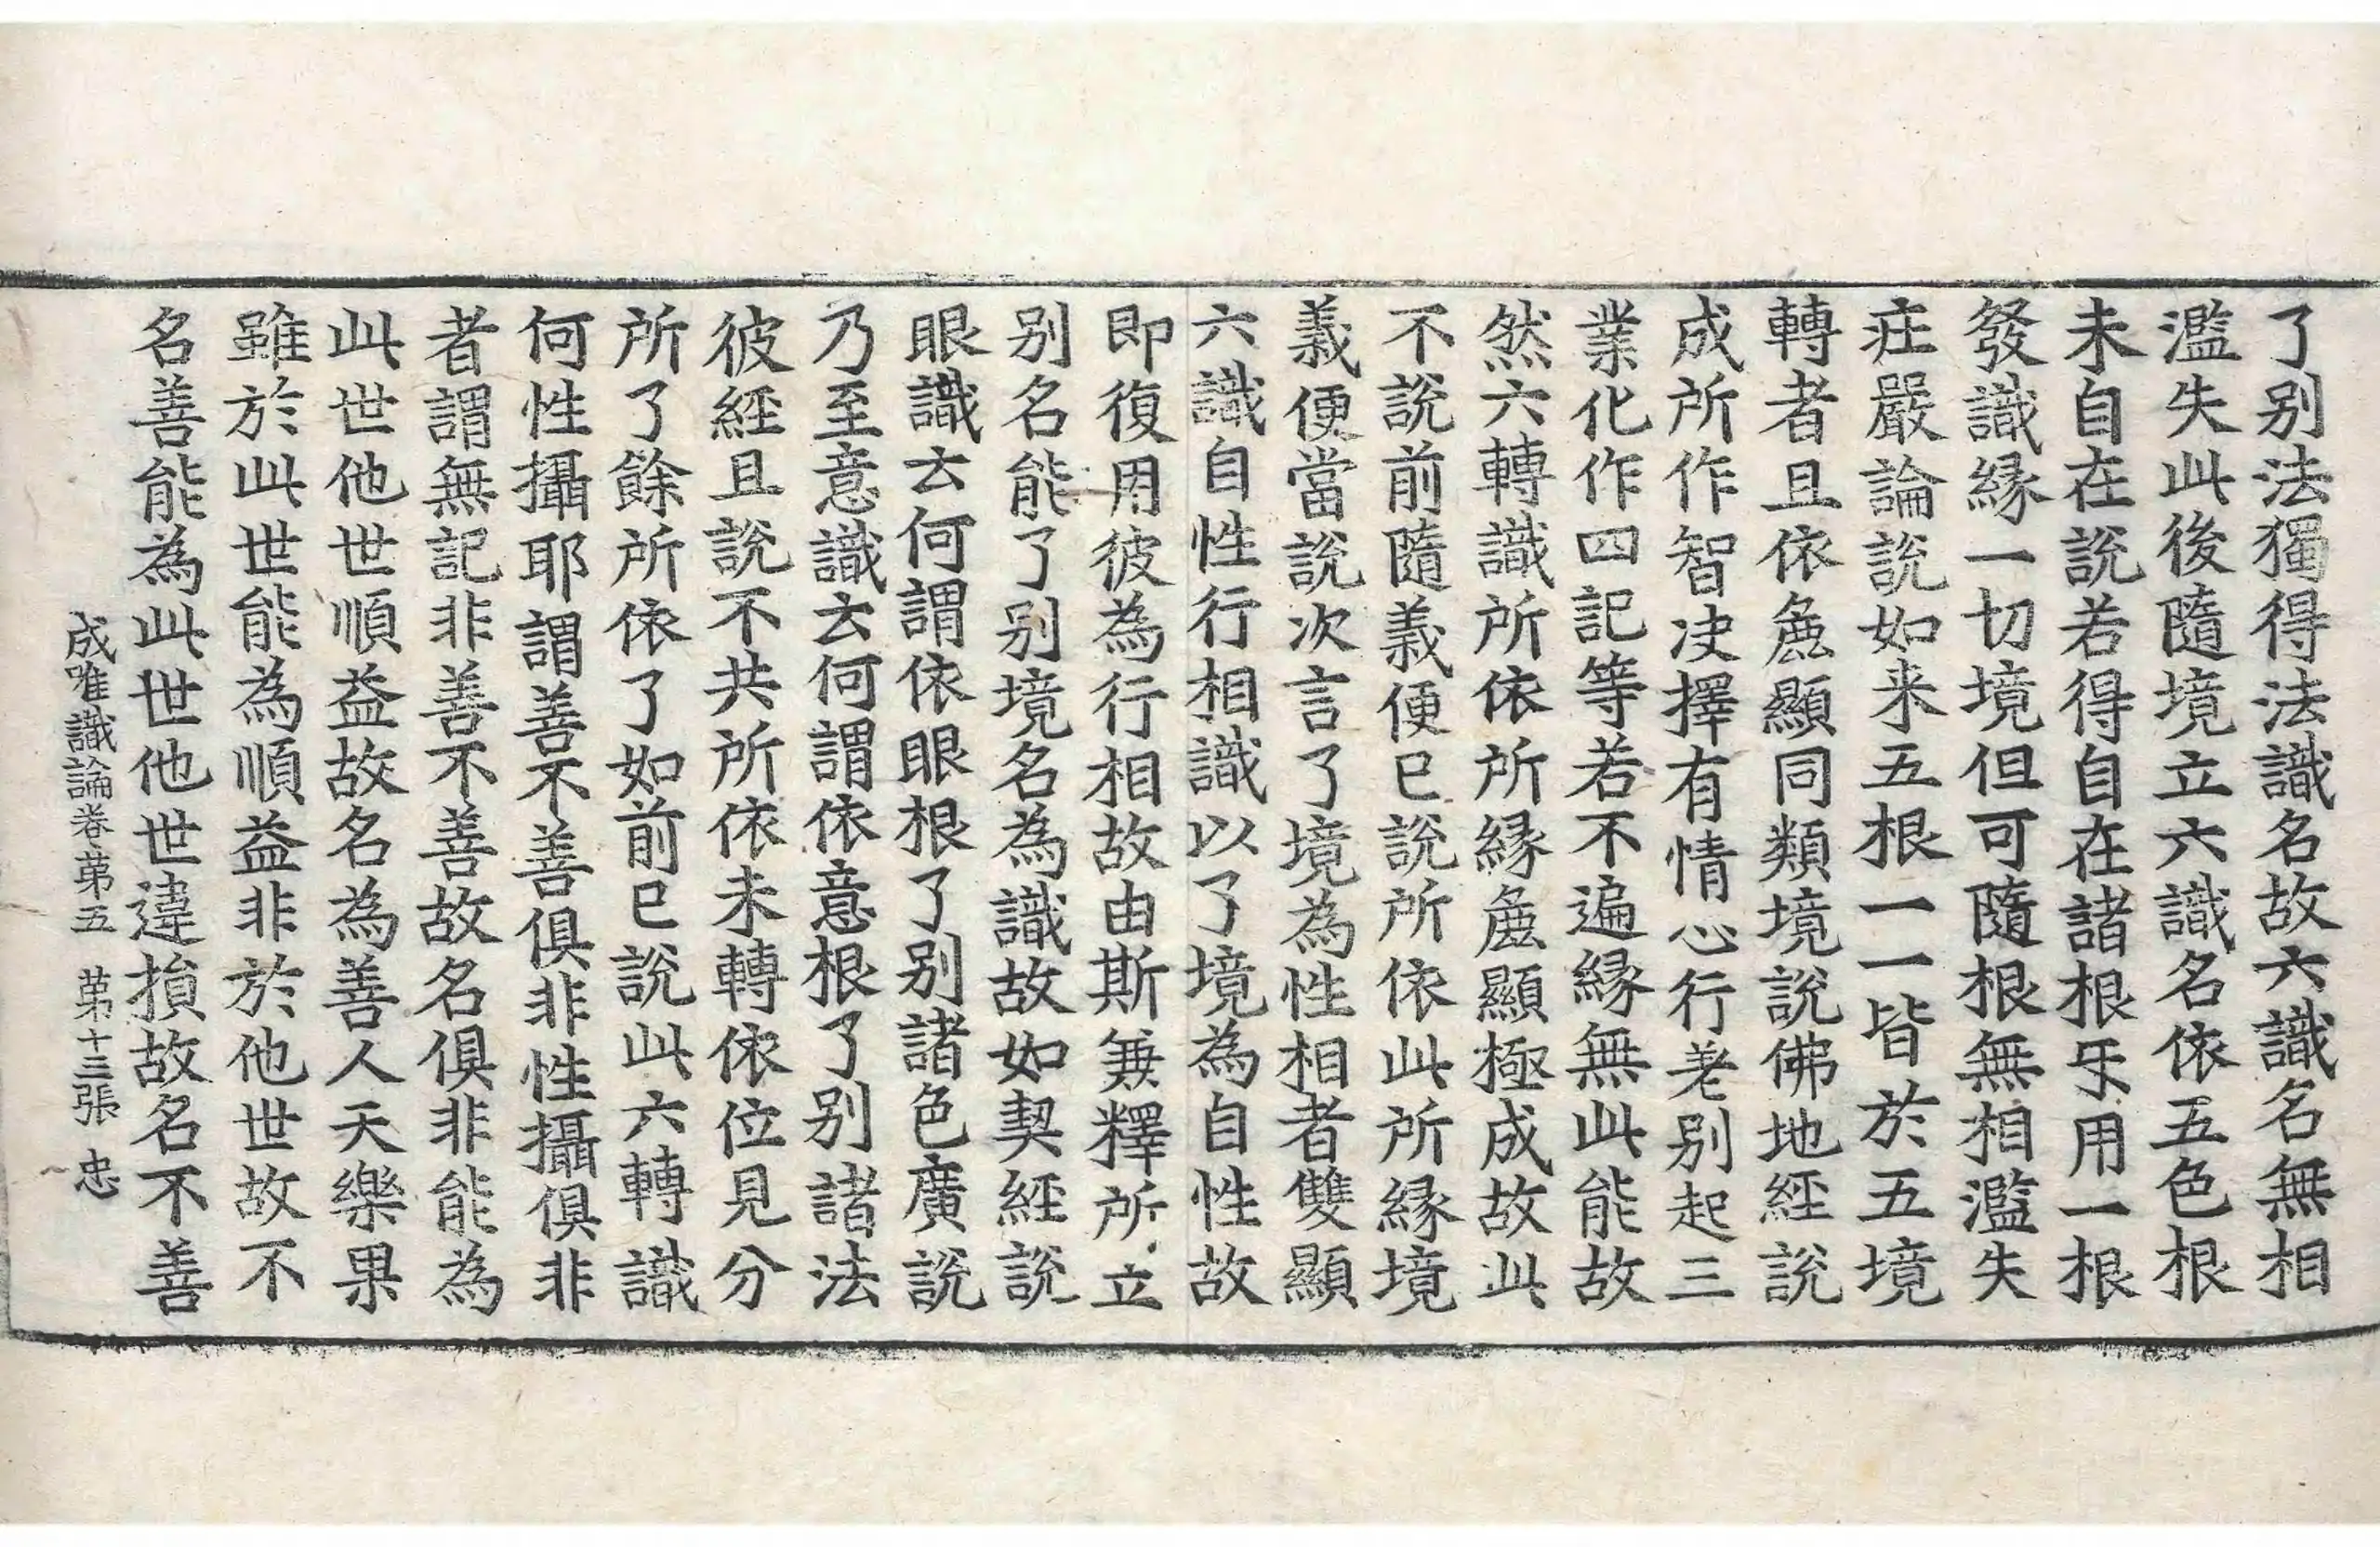 了别法獨得法識名故六識名無相
濫失此後隨境立六識名依五色根
未自在說若得自在諸根㸦用一根
發識縁一切境但可隨根無相濫失
庄嚴論說如来五根一一皆於五境
轉者且依麁顯同類境說佛地經說
成所作智决擇有情心行差别起三
業化作四記等若不遍縁無此能故
然六轉識所依所縁麁顯極成故此
不說前隨義便已說所依此所縁境
義便當說次言了境為性相者雙顯
六識自性行相識以了境為自性故
即復用彼為行相故由斯兼釋所立
别名能了别境名為識故如契經說
眼識云何謂依眼根了别諸色廣說
乃至意識云何謂依意根了别諸法
彼經且說不共所依未轉依位見分
所了餘所依了如前已說此六轉識
何性攝耶謂善不善俱非性攝俱非
者謂無記非善不善故名俱非能為
此世他世順益故名為善人天樂果
雖於此世能為順益非於他世故不
名善能為此世他世違損故名不善
成唯識論卷第五 第十三張 忠